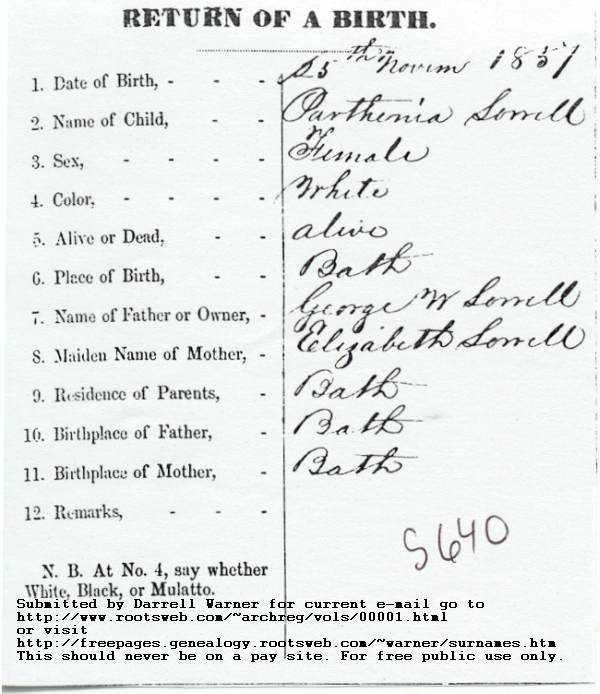 RETURN OF A BIRTH.
1. Date of Birth, - - - 25th Novem 1857
2. Name of Child, - - Parthenia Sorrell
3. Sex, - - - - Female
4. Color, - - - - White
5. Alive or Dead, - - alive
6. Place of Birth, - - Bath
7. Name of Father or Owner, - George W Sorrell
8. Maiden Name of Mother, - Elizabeth Sorrell
9. Residence of Parents, - Bath
10. Birthplace of Father, - Bath
11. Birthplace of Mother, - Bath
12. Remarks, - - -
S640
N. B. At No. 4, say whether
White, Black, or Mulatto.
Submitted by Darrell Warner for current e-mail go to
http://www.rootsweb.com/~archreg/vols/00001.html
or visit
http://freepages.genealogy.rootsweb.com/~warner/surnames.htm
This should never be on a pay site. For free public use only.